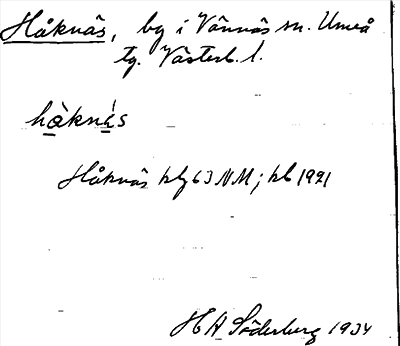 Håknäs, by i Vännäs sn. Umeå
tg. Västerb. l.
hàknás
Håknäs klg 63 NM; kb 1921
H A Söderberg 1934